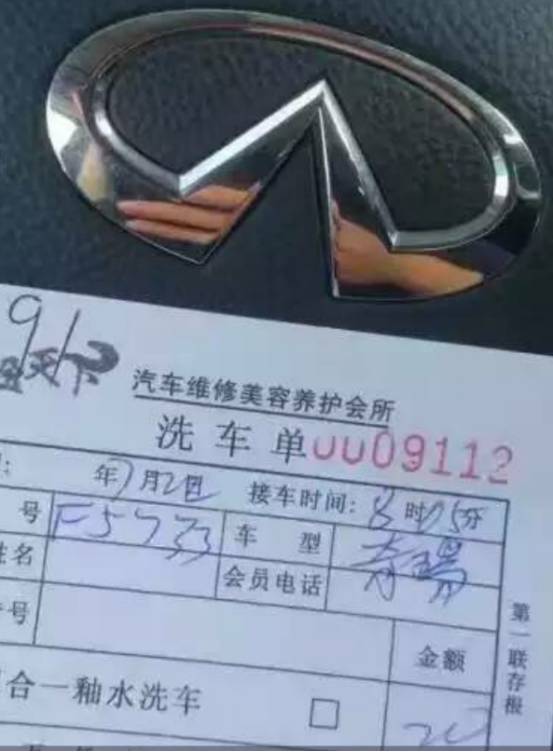 91
天下
汽车维修美容养护会所
洗车单 0009112
年7月2日 接车时间: 8时05分
号 F5733 车型 奇瑞
姓名 会员电话
号
金额
合一釉水洗车 □ 20
第一联存根